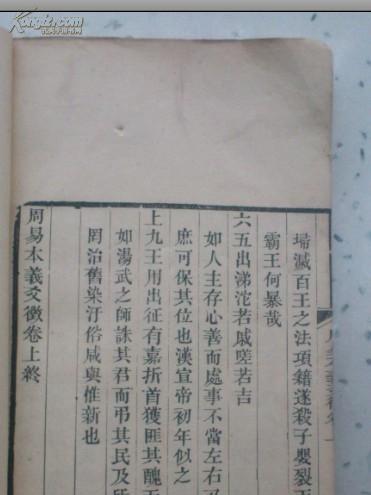 埽滅百王之法項籍遂殺子嬰裂
霸王何暴哉
六五出涕沱若戚嗟若吉
如人主存心善而處事不當左右
庶可保其位也漢宣帝初年似之
上九王用出征有嘉折首獲匪其醜无
如湯武之師誅其君而弔其民及
罔治舊染汙俗咸與惟新也
周易本義爻徵卷上終